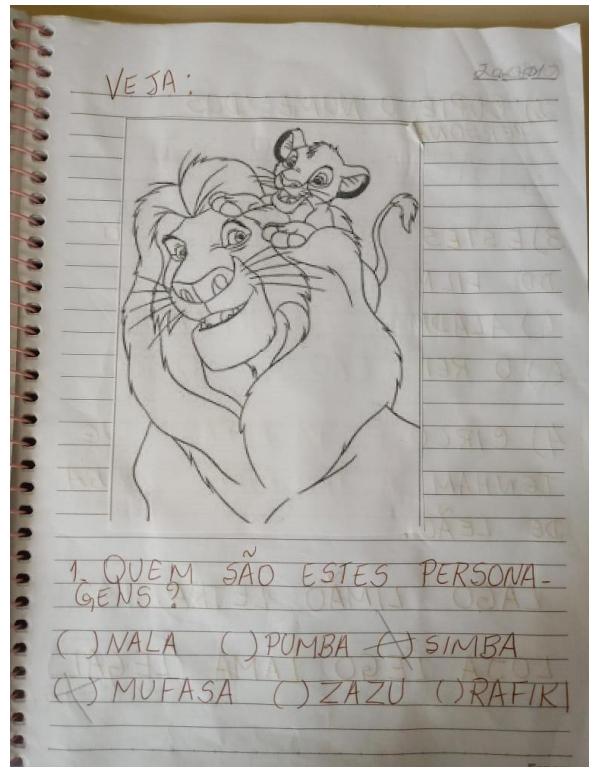 VEJA:
1. QUEM SÃO ESTES PERSONA-
GENS?
( ) NALA ( ) PUMBA (X) SIMBA
(X) MUFASA ( ) ZAZU ( ) RAFIKI